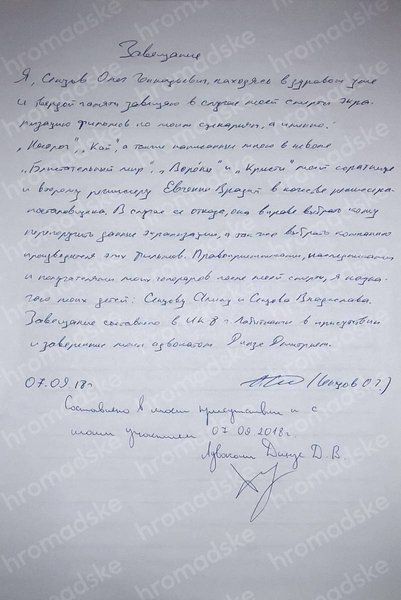 Завещание
Я, Сенцов Олег Геннадьевич, находясь в здравом уме
и твердой памяти завещаю в случае моей смерти экра-
низацию фильмов по моим сценариям, а именно:
„Носорог", „Кай", а также написанных мною в неволе
и второму режиссеру Евгении Врадий в качестве режиссера-
постановщика. В случае ее отказа, она вправе выбрать кому
перепоручить данные экранизации, а также выбрать компанию
производителя этих фильмов. Правоприемниками, наследниками
и получателями моих гонораров после моей смерти, я назна-
чаю моих детей: Сенцову Алину и Сенцова Владислава.
Завещание составлено в ИК-8 г. Лабытнанги в присутствии
и заверенное моим адвокатом Динзе Дмитрием.
07.09.18г. (Сенцов О.Г.)
Составлено в моем присутствии и с
моим участием 07.09.2018г.
Адвокат Динзе Д.В
hromadske